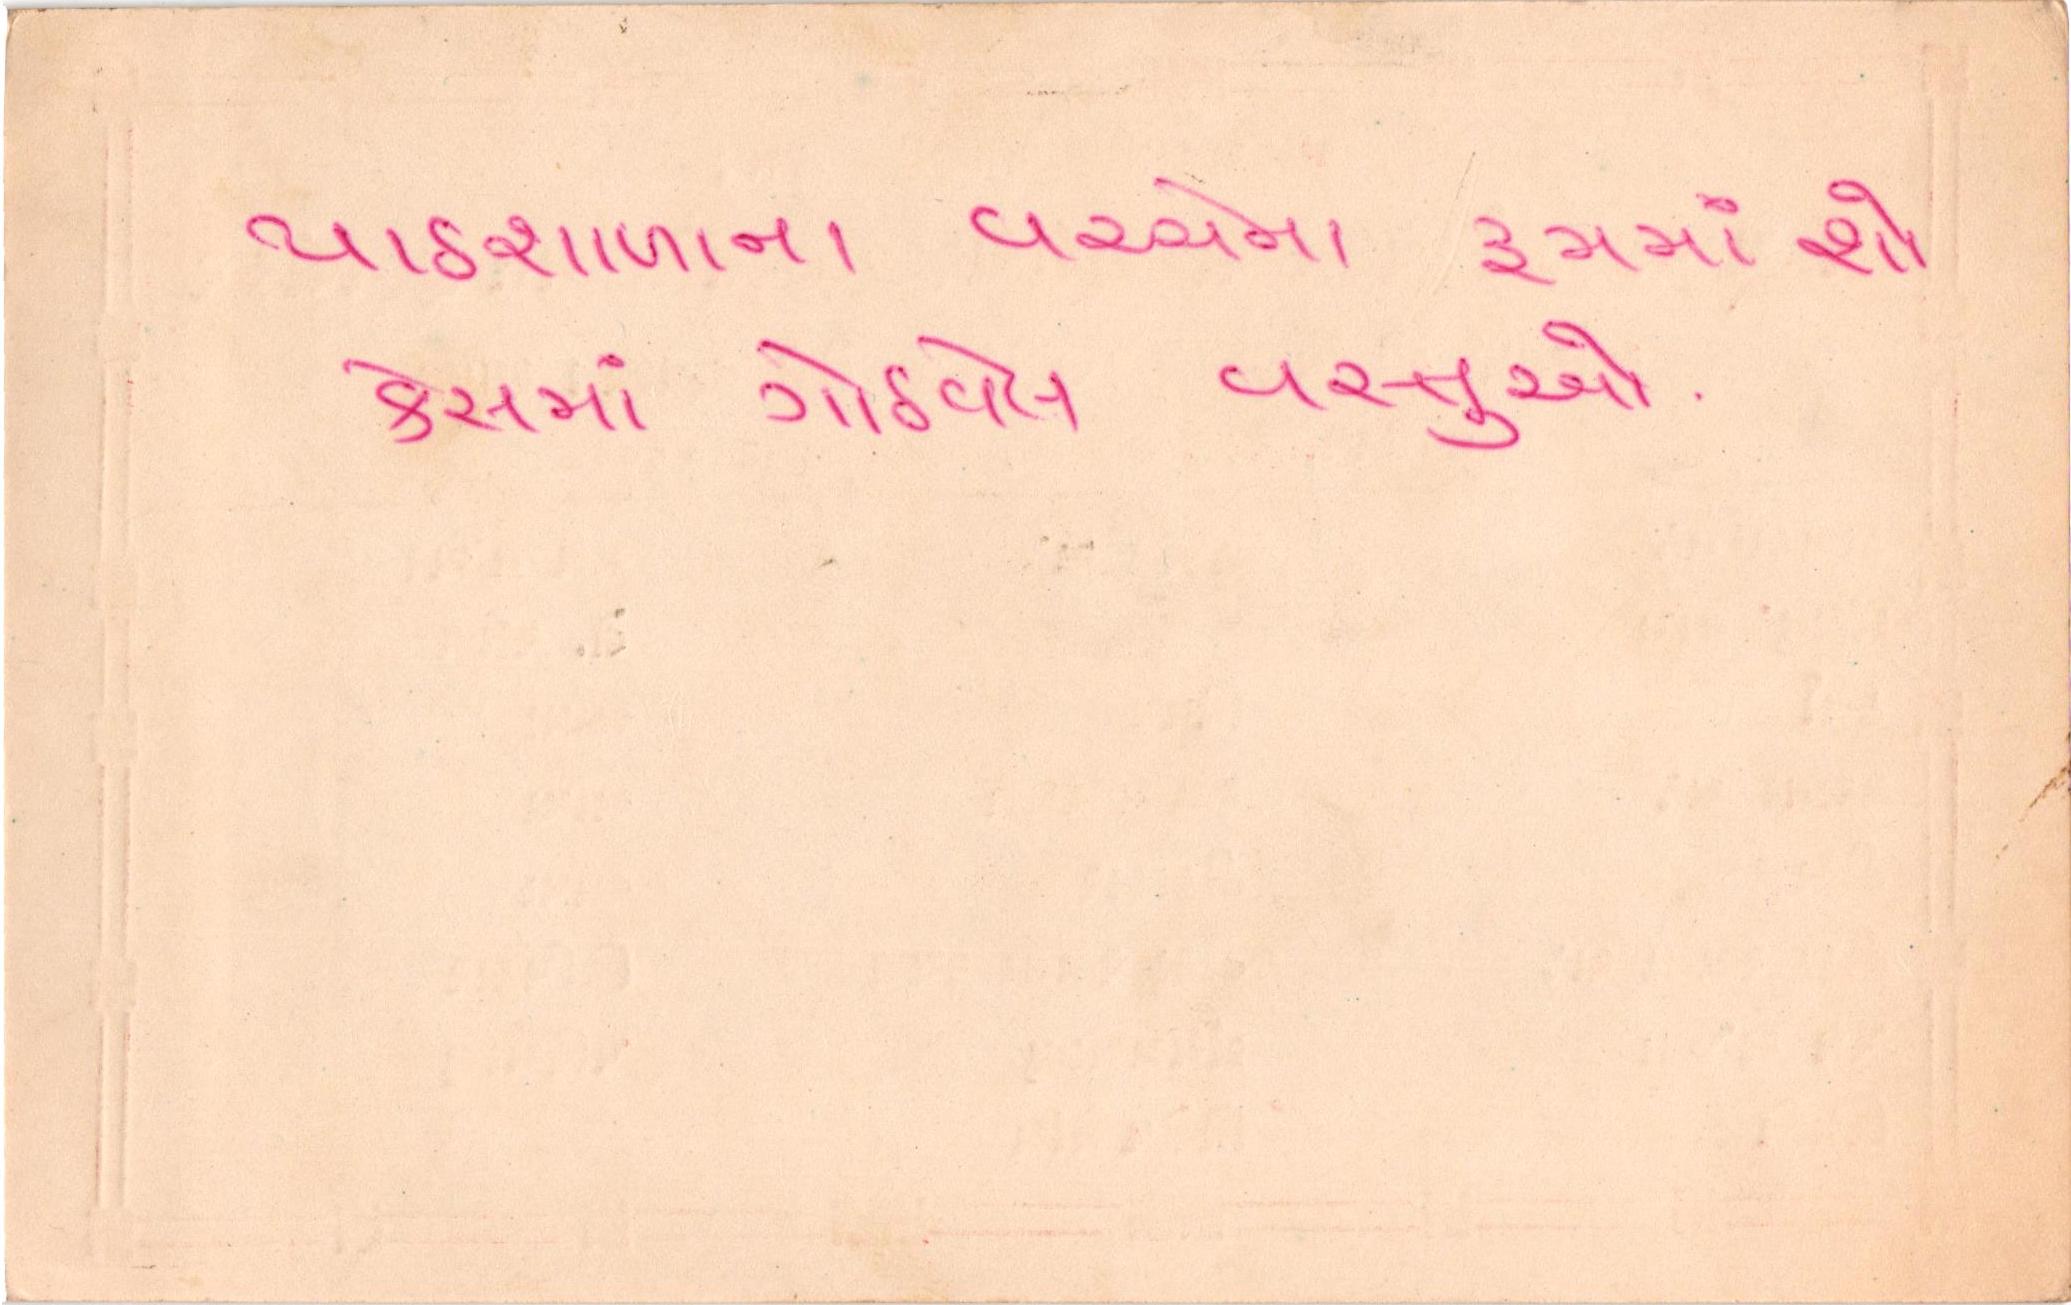 પાઠશાળાના વચ્ચેના રૂમમાં શો
કેસમાં ગોઠવેલ વસ્તુઓ.